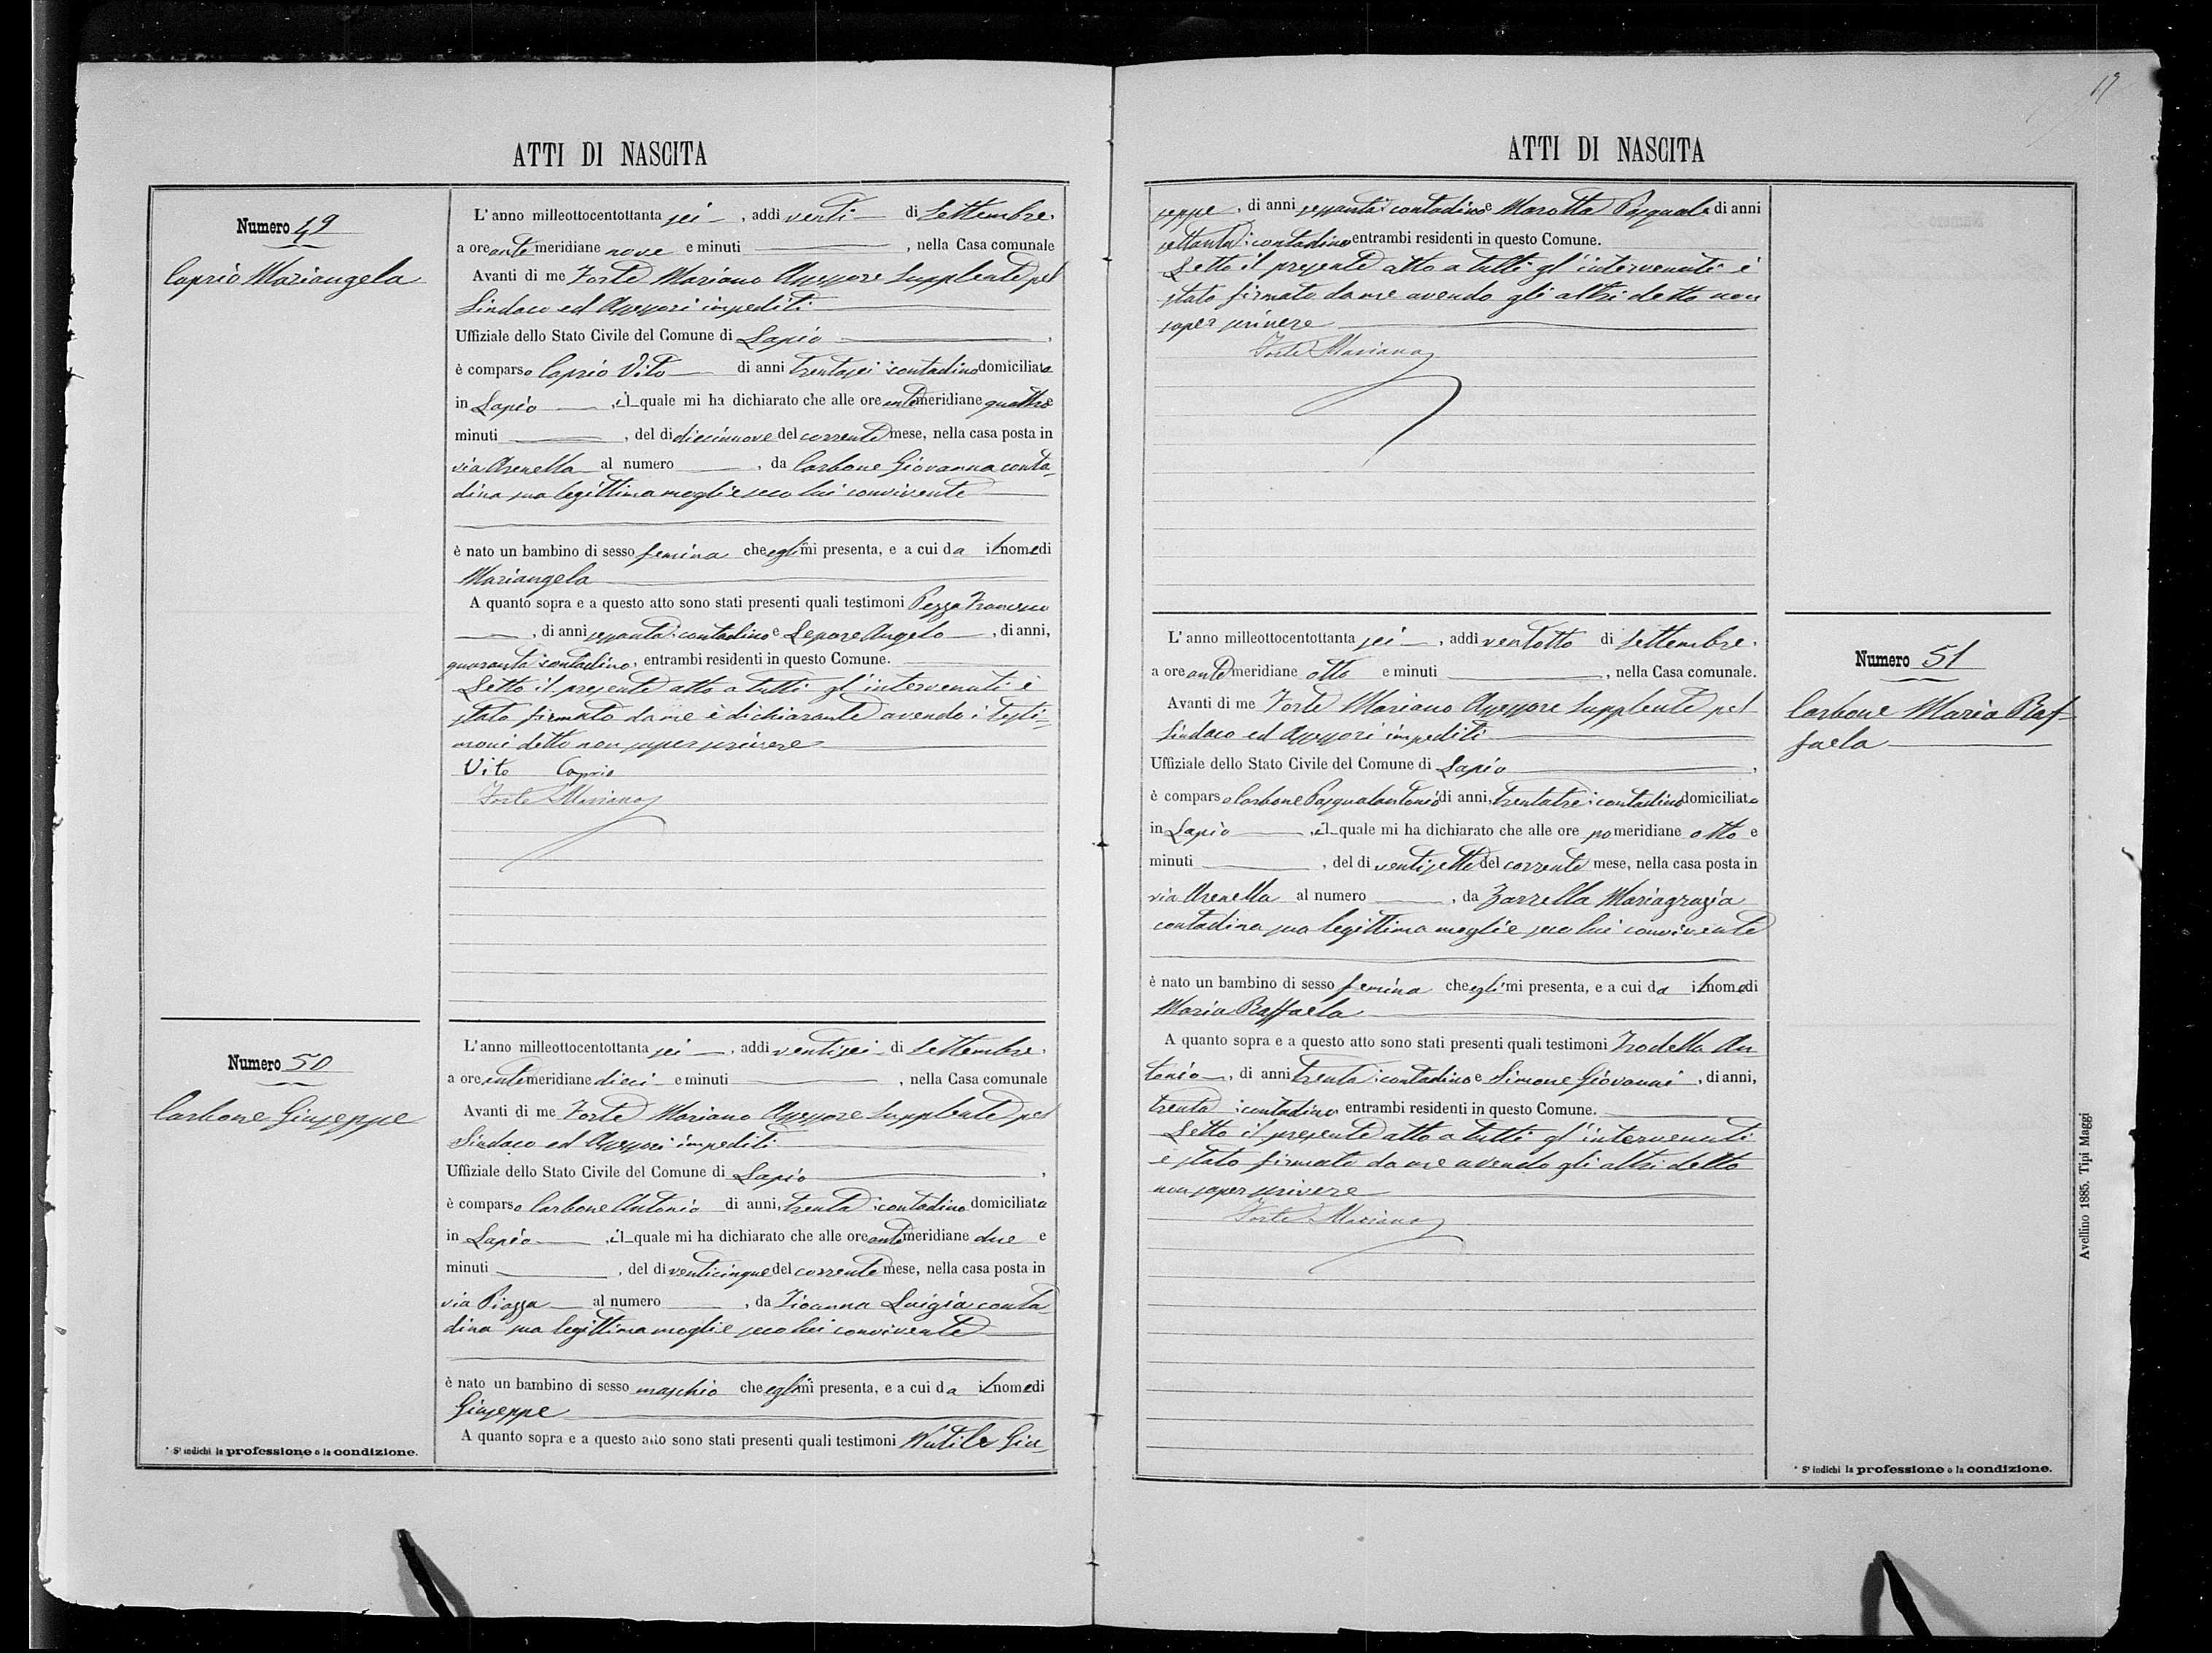 ATTI DI NASCITA
Numero 49
Caprio Mariangela
L'anno milleottocentottanta sei, addi venti di Settembre,
a ore antemeridiane nove e minuti, nella Casa comunale
Avanti di me Forte Mariano Assessore Supplente pel
Sindaco ed Assessori impediti
Uffiziale dello Stato Civile del Comune di Lapio,
è comparso Caprio Vito di anni trentasei contadino domiciliato
in Lapio, il quale mi ha dichiarato che alle ore antemeridiane quattro e
minuti, del di diecinnove del corrente mese, nella casa posta in
via Arenella al numero, da Carbone Giovanna conta-
dina sua legittima moglie seco lui convivente
è nato un bambino di sesso femina che egli mi presenta, e a cui da il nome di
Mariangela
A quanto sopra e a questo atto sono stati presenti quali testimoni Pezza Francesco
, di anni sessanta contadino e Lepore Angelo, di anni,
quaranta contadino, entrambi residenti in questo Comune.
Letto il presente atto a tutti gl'intervenuti è
stato firmato da me è dichiarante avendo i testi-
moni detto non saper scrivere
Vito Caprio
Forte Mariano
Numero 50
Carbone Giuseppe
L'anno milleottocentottanta sei, addi ventisei di Settembre,
a ore antemeridiane dieci e minuti, nella Casa comunale
Avanti di me Forte Mariano Assessore Supplente pel
Sindaco ed Assessori impediti
Uffiziale dello Stato Civile del Comune di Lapio,
è comparso Carbone Antonio di anni, trenta contadino domiciliato
in Lapio, il quale mi ha dichiarato che alle ore antemeridiane due e
minuti, del di venticinque del corrente mese, nella casa posta in
via Piazza al numero, da Luigia conta-
dina sua legittima moglie seco lui convivente
è nato un bambino di sesso maschio che egli mi presenta, e a cui da il nome di
Giuseppe
A quanto sopra e a questo atto sono stati presenti quali testimoni Nutile Giu-
* Si indichi la professione o la condizione.
17
ATTI DI NASCITA
seppe, di anni sessanta contadino e Marotta Pasquale di anni
settanta contadino entrambi residenti in questo Comune.
Letto il presente atto a tutti gl'intervenuti è
stato firmato da me avendo gli altri detto non
saper scrivere
Forte Mariano
Numero 51
Carbone Maria Raf-
faela
L'anno milleottocentottanta sei, addi ventotto di Settembre,
a ore antemeridiane otto e minuti, nella Casa comunale.
Avanti di me Forte Mariano Assessore Supplente pel
Sindaco ed Assessori impediti
Uffiziale dello Stato Civile del Comune di Lapio,
è comparso Carbone Pasqualantonio di anni, trentatre contadino domiciliato
in Lapio, il quale mi ha dichiarato che alle ore pomeridiane otto e
minuti, del di ventisette del corrente mese, nella casa posta in
via Arenella al numero, da Zarrella Mariagrazia
contadina sua legittima moglie seco lui convivente
è nato un bambino di sesso femina che egli mi presenta, e a cui da il nome di
Maria Raffaela
A quanto sopra e a questo atto sono stati presenti quali testimoni Trodella An
tonio, di anni trenta contadino e Simone Giovanni, di anni,
trenta contadino entrambi residenti in questo Comune.
Letto il presente atto a tutti gl'intervenuti
è stato firmato da me avendo gli altri detto
non saper scrivere
Forte Mariano
* Si indichi la professione o la condizione.
Avellino 1885. Tipi Maggi